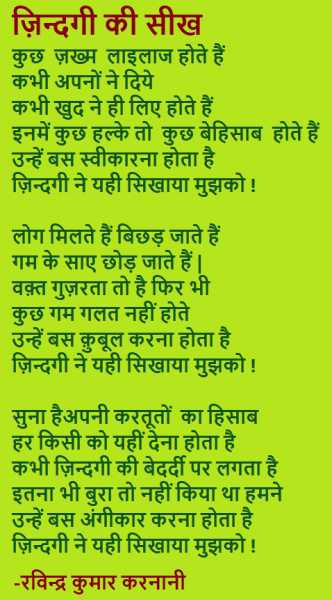 ज़िन्दगी की सीख
कुछ ज़ख्म लाइलाज होते हैं
कभी अपनों ने दिये
कभी खुद ने ही लिए होते हैं
इनमें कुछ हल्के तो कुछ बेहिसाब होते हैं
उन्हें बस स्वीकारना होता है
ज़िन्दगी ने यही सिखाया मुझको !
लोग मिलते हैं बिछड़ जाते हैं
गम के साए छोड़ जाते हैं|
वक़्त गुज़रता तो है फिर भी
कुछ गम गलत नहीं होते
उन्हें बस क़ुबूल करना होता है
ज़िन्दगी ने यही सिखाया मुझको !
सुना हैअपनी करतूतों का हिसाब
हर किसी को यहीं देना होता है
कभी ज़िन्दगी की बेदर्दी पर लगता है
इतना भी बुरा तो नहीं किया था हमने
उन्हें बस अंगीकार करना होता है
ज़िन्दगी ने यही सिखाया मुझको !
-रविन्द्र कुमार करनानी